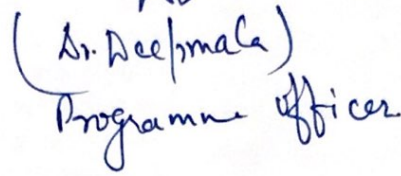 (Dr. Deepmala)
Programme Officer